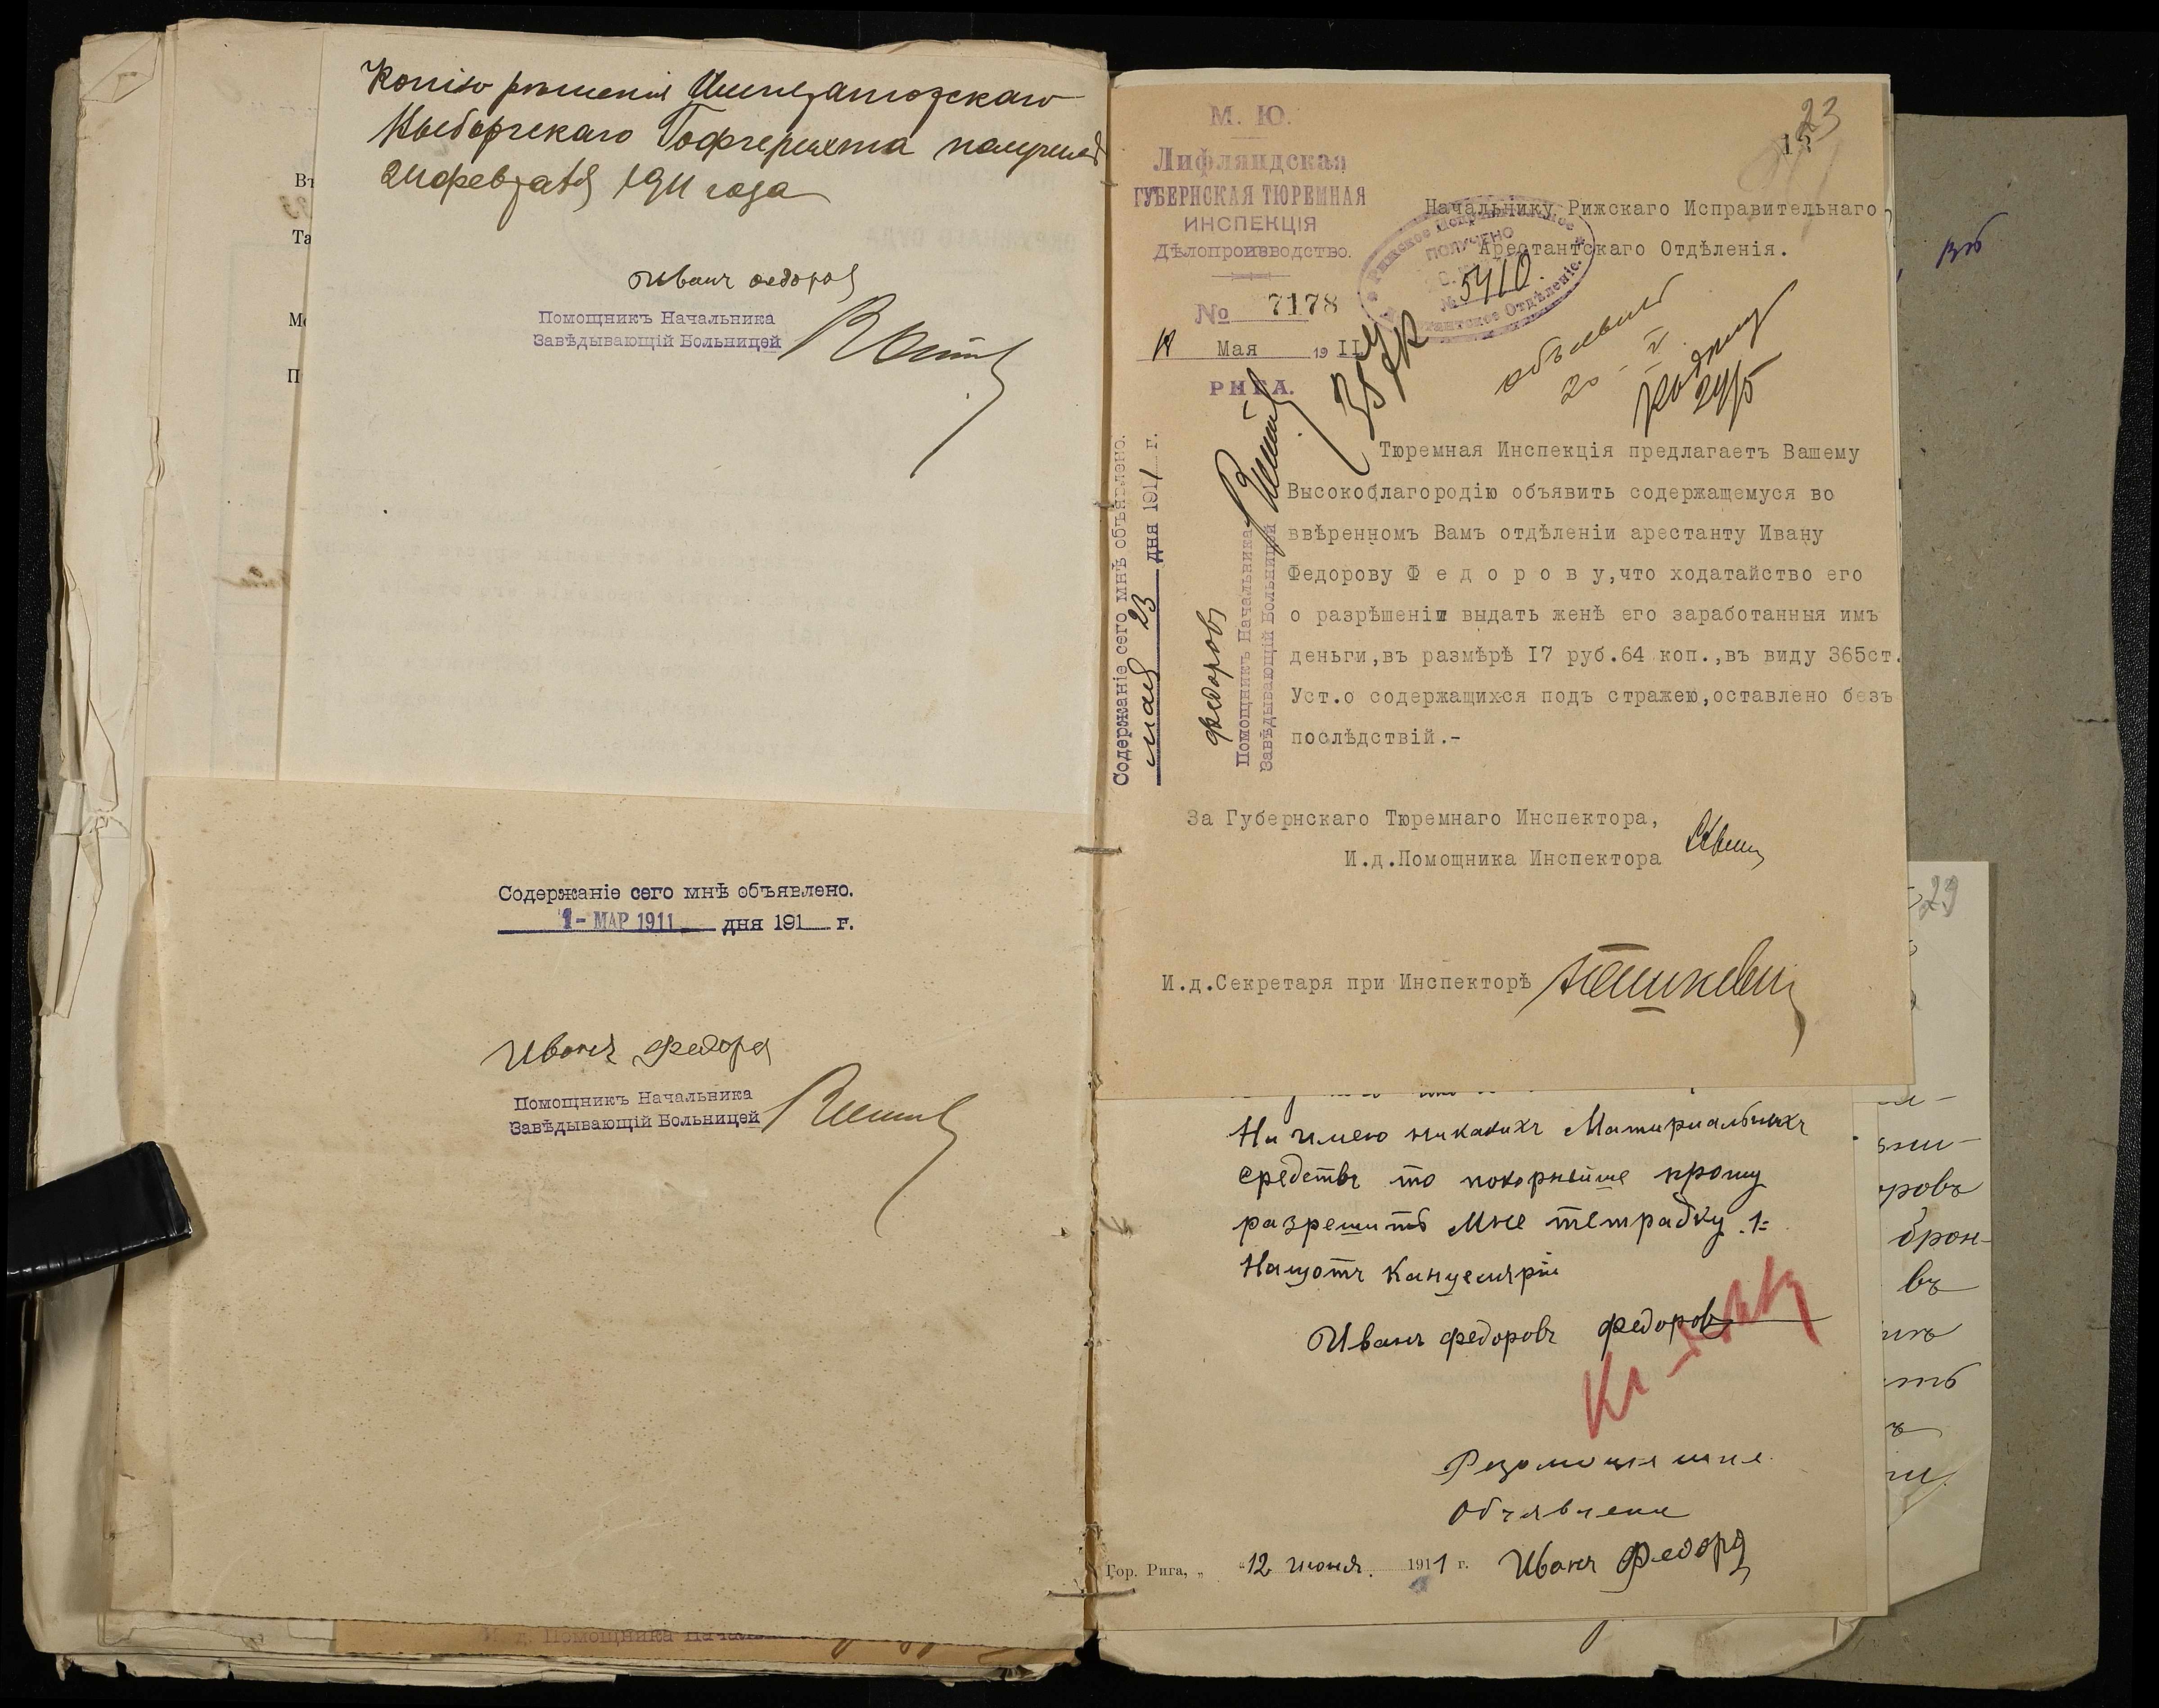 Копію рѣшенія Императорскаго
Выборгскаго Гофгерихта получилъ
21 февраля 1911 года
Иванъ Федоров
Помощникъ Начальника
Завѣдывающій Больницей
Въ
Та
Мо
П
Содержаніе сего мнѣ объявлено.
1- МАР 1911 дня 191 г.
Иванъ Федоров
Помощникъ Начальника
Завѣдывающій Больницей
И. д. Помощника
М. Ю.
Лифляндская
ГУБЕРНСКАЯ ТЮРЕМНАЯ
ИНСПЕКЦІЯ
Дѣлопроизводство.
№ 7178
18 Мая 1911
РИГА.
23
Начальнику Рижскаго Исправительнаго
Арестантскаго Отдѣленія.
Рижское Исправительное
ПОЛУЧЕНО
№ 5410
Арестантское Отдѣленіе.
объявить
Содержаніе сего мнѣ объявлено.
мая 23 дня 1911 г.
Федоровъ
Помощникъ Начальника
Завѣдывающій Больницей
Тюремная Инспекція предлагаетъ Вашему
Высокоблагородію объявить содержащемуся во
ввѣренномъ Вамъ отдѣленіи арестанту Ивану
Федорову Ф е д о р о в у,что ходатайство его
о разрѣшеніи выдать женѣ его заработанныя имъ
деньги,въ размѣрѣ I7 руб.64 коп.,въ виду 365ст.
Уст.о содержащихся подъ стражею,оставлено безъ
послѣдствій.-
За Губернскаго Тюремнаго Инспектора,
И.д.Помощника Инспектора
И.д.Секретаря при Инспекторѣ
Ни имею никакихъ Матириальныхъ
средствъ то покорнейше прошу
разрешить Мне тетрадку 1=
Нащотъ Канцелярiи
Иванъ Федоровъ Федоровъ
Резолюция мне
Объявлена
Гор. Рига, „ “ 12 июня. 1911 г. Иванъ Федоров
29